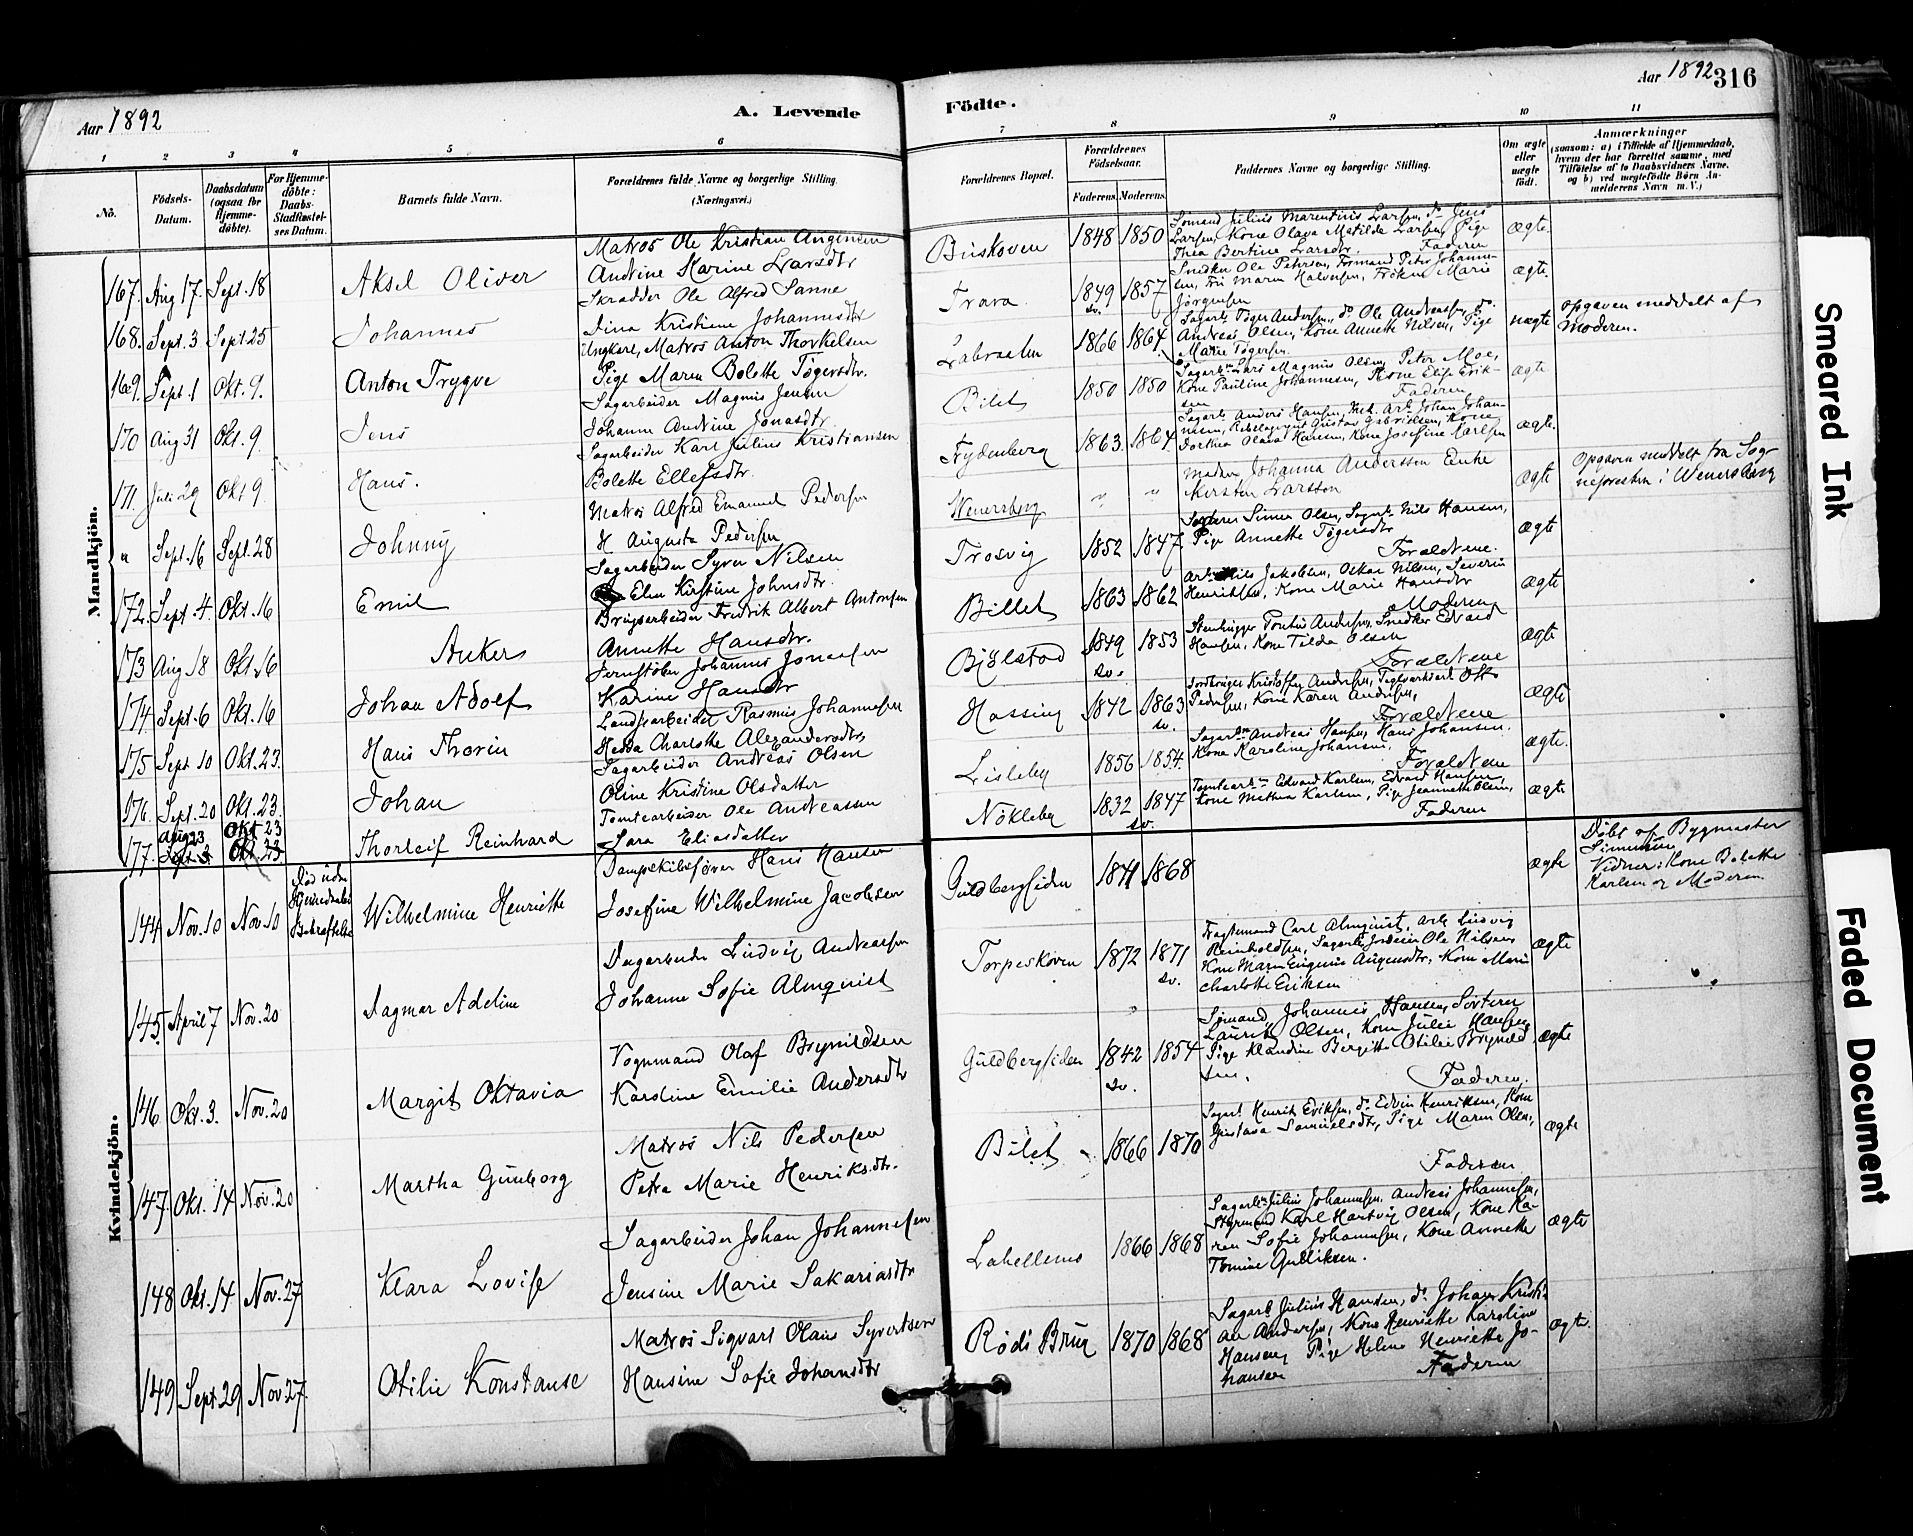 Aar 1892
A. Levende
Födte.
Aar 1892 316
1 2 3 4 5 6 7 8 9 10 11
No.
Födsels-
Datum.
Daabsdatum
(ogsaa for
Hjemme-
döbte).
For Hjemme-
döbte:
Daabs-
Stadfæstel-
ses Datum.
Barnets fulde Navn.
Forældrenes fulde Navne og borgerlige Stilling.
(Næringsvei.)
Forældrenes Bopæl.
Forældrenes
Födselsaar.
Faderens. Moderens.
Faddernes Navne og borgerlige Stilling.
Om ægte
eller
uægte
födt.
Anmærkninger
(saasom: a) i Tilfælde af Hjemmedaab,
hvem der har forrettet samme, med
Tilföielse af to Daabsvidners Navne.
og b) ved uægtefödte Börn An-
melderens Navn m. V.)
Mandkjön.
167. Aug 17. Sept. 18 Aksel Oliver
Matros Ole Kristian Augensen
Andrine Marine Larsdtr
1848 1850
Sömand Julius Marentius Larsen, do Jens
Larsen, Kone Olava Matilda Larsen, Pige
Thea Bertine Larsdtr. Faderen
ægte.
168. Sept. 3 Sept. 25 Johannes
Skrædder Ole Alfred Sanne
Dina Kristine Johannesdtr
Trara 1849 sv. 1857
Snedker Ole Petersen, Formand Peter Johann-
sen, Fru Maren Halvorsen, Fröken Marie
Jörgensen
ægte.
169. Sept. 1 Okt. 9. Anton Trygve
Ungkarl, Matros Anton Thorkelsen
Pige Maren Bolette Tögersdtr.
1866 1864
Sagarb. Töger Andersen, do Ole Andreassen, do
Andreas Olsen, Kone Annette Nilsen, Pige
Marie Tögersen.
uægte
Opgaven meddelt af
Moderen.
170 Aug 31 Okt. 9. Jens
Sagarbeider Magnus Jensen
Johanne Andrine Jonasdtr
Bilet 1850 1850
Sagarb. Lars Magnus Olsen, Peter Moe,
Kone Pauline Johannesen, Kone Elise Erik-
sen Faderen
ægte
171. Juli 29 Okt 9. Hans.
Sagarbeider Karl Julius Kristiansen
Bolette Ellefsdtr.
Frydenberg 1863. 1864.
Sagarb. Anders Hansen, Mek. Arb. Johan Johan-
nesen, Gustav Gabrielsen, Kone
Dorthea Olava Hansen, Kone Josefine Carlsen
ægte.
" Sept. 16 Sept. 28 Johnny
Matros Alfred Emanuel Pedersen
H Augusta Pedersen
Wenersborg " "
Madam Johanna Andersson Enke
Kersten Larsson
ægte
Opgaven meddelt fra Sog-
nepresten i Wenersborg
172. Sept. 4 Okt. 16 Emil
Sagarbeider Syver Nilsen
Elen Kirstine Johnsdtr.
Trosvig 1852 1847.
Sorterer Simen Olsen, Sagarb. Nils Hansen,
Pige Annette Tögersdtr
Forældrene.
ægte
173 Aug 18 Okt. 16 Anker
Brugsarbeider Fredrik Albert Antonsen
Annette Hansdtr.
Billet 1863 1862
Arb. Nils Jakobsen, Oskar Nilsen, Severin
Henriksen, Kone Marie Hansdtr
Moderen
ægte
174 Sept. 6 Okt. 16 Johan Adolf
Jernstöber Johannes Jonassen
Karine Hansdtr
Bjölstad 1849 sv. 1853
Stenhugger Pontus Andersen, Snedker Edvard
Hansen, Kone Tilda Olsen
Forældrene
ægte
175 Sept 10 Okt. 23. Hans Thorin
Landsarbeider Rasmus Johannesen
Hedda Charlotte Alexandersdtr
Hassing 1842 1863 sv.
Jordbruger Kristoffer Andersen, Teglverksarb. Ole
Pedersen, Kone Karen Andersen,
Forældrene
ægte
176. Sept. 20 Okt. 23. Johan
Sagarbeider Andreas Olsen
Oline Kristine Olsdatter
Lisleby 1856 1854.
Sagarb. Andreas Hansen, Hans Johansen.
Kone Karoline Johansen.
Forældrene
ægte.
177. Aug 23 Okt 23
Sept. 3 Okt. 23 Thorleif Reinhard
Tomtearbeider Ole Andreassen
Sara Eliasdatter
Nökleby 1832 1847 sv.
Tomtearb. Edvard Karlsen, Edvard Hansen,
Kone Mathea Karlsen, Pige Jeannette Olsen,
Faderen
ægte
Kvindekjön.
144 Nov. 10 Nov. 10
Död uden
Hjemmedaabs
Bekræftelse
Wilhelmine Henriette
Dampskibsförer Hans Hansen
Josefine Wilhelmine Jacobsen
Guldbergsiden 1871 1868
ægte
Döbt af Bygmester
Simensen
Vidner: Kone Bolette
Karlsen og Moderen
145. April 7 Nov. 20 Dagmar Adeline
Sagarbeider Ludvig Andreassen
Johanne Sofie Almquist
Torpeskoven 1872 1871 sv.
Fragtemand Carl Almquist, Arb. Ludvig
Reinholdsen, Sagarb. Ole Nilsen
Kone Maren Eugenie Augensdtr. Kone Marie
Charlotte Eriksen
ægte
146 Okt. 3. Nov. 20 Margit Oktavia
Vognmand Olaf Brynildsen
Karoline Emilie Andersdtr
Guldbergsiden 1842 sv. 1854
Sjömand Johannes Hansen, Sorterer
Laurits Olsen, Kone Julie Hansen,
Pige Klaudine Bergitte Otilie Brynild
sen.
Faderen.
ægte
147. Okt. 14 Nov. 20 Martha Gunborg
Matros Nils Pedersen
Petra Marie Henriksdtr.
Bilet 1866 1870
Sagarb. Henrik Eriksen, do Edvin Henriksen, Kone
Gustava Samuelsdtr, Pige Maren Olsen,
Faderen
ægte
148 Okt. 14 Nov. 27 Klara Lovise
Sagarbeider Johan Johannesen
Jensine Marie Sakariasdtr
Lahellemo 1866 1868
Sagarb. Julius Johannesen, Andreas Johannesen,
Styrmand Karl Hartvig Olsen, Kone Ka-
ren Sofie Johannesen, Kone Annette
Tomine Gulliksen.
ægte
149 Sept 29 Nov. 27. Otilie Konstanse
Matros Sigvart Olaus Syvertsen
Hansine Sofie Johansdtr
Röds Brug 1870 1868
Sagarb. Julius Hansen, do Johan Kristi-
an Andersen, Kone Henriette Karoline
Hansen, Pige Helene Henriette Jo-
hansen Faderen
ægte.
Smeared Ink
Faded Document